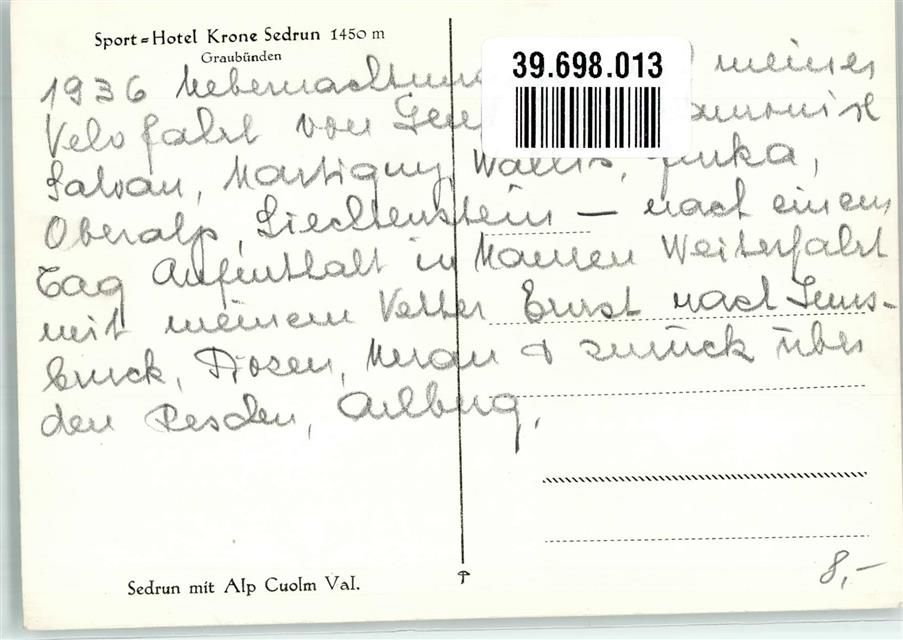 Sport=Hotel Krone Sedrun 1450 m
Graubünden
39.698.013
1936 Uebernachtung meiner
Velofahrt von
Salvan, Martigny, Wallis, Furka,
Oberalp, Liechtenstein — nach einem
Tag Aufenthalt in Mauren Weiterfahrt
mit meinem Vetter Ernst nach Inns-
bruck, Bozen, Meran & zurück über
den Reschen, Arlberg.
Sedrun mit Alp Cuolm Val.
8,—